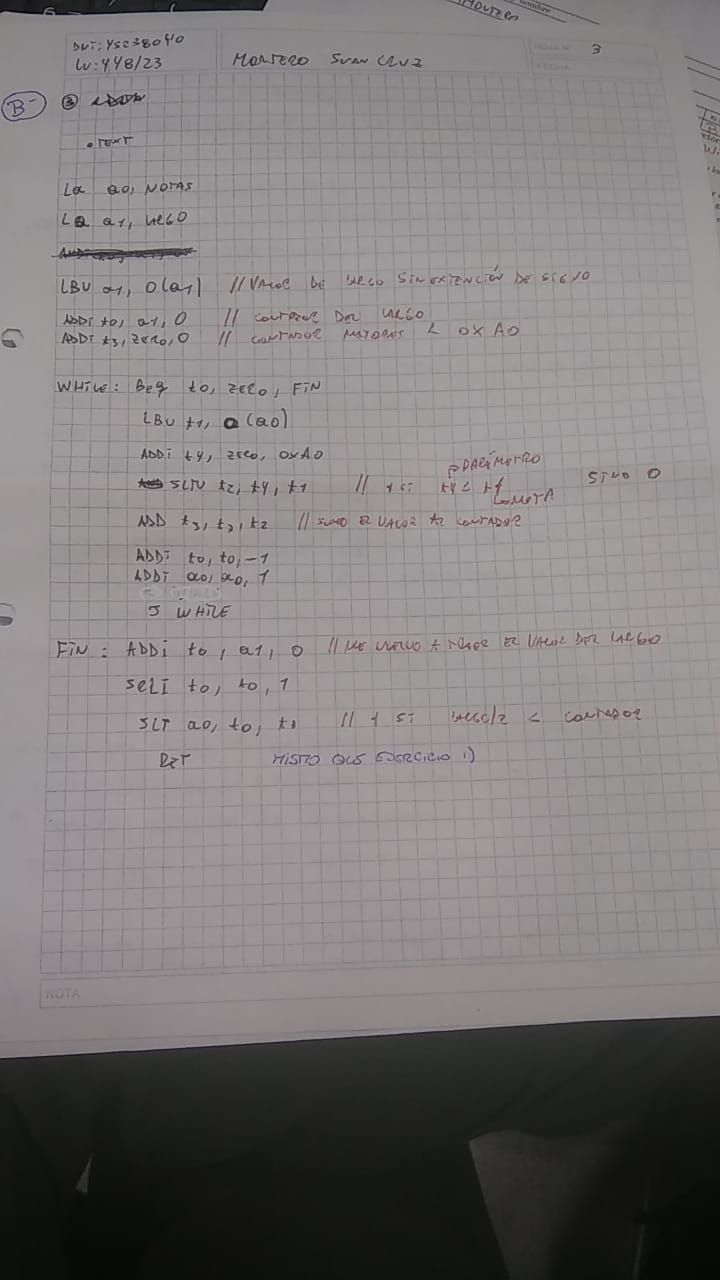 MONTERO
nombre
DNI: 45238040
LU: 448/23
MONTERO JUAN CRUZ
3
FECHA
B-
3
.TEXT
La a0, NOTAS
La a1, LARGO
LBU a1, 0(a1) // VALOR DE LARGO SIN EXTENCIÓN DE SIGNO
ADDi t0, a1, 0 // CONTADOR DEL LARGO
ADDI t3, ZERO, 0 // CONTADOR MAYORES A 0XA0
WHILE: Beq t0, ZERO, FIN
LBU t1, 0(a0)
ADDi t4, ZERO, 0XA0
PARÁMETRO
SLTU t2, t4, t1 // 1 SI t4 < t1 SINO 0
NOTA
ADD t3, t3, t2 // SUMO EL VALOR AL CONTADOR
ADDI t0, t0, -1
ADDI a0, a0, 1
J WHILE
FIN: ADDi t0, a1, 0 // ME VUELVO A TRAER EL VALOR DEL LARGO
SRLI t0, t0, 1
SLT a0, t0, t3 // 1 SI LARGO/2 < CONTADOR
RET MISMO QUE EJERCICIO 1)
NOTA